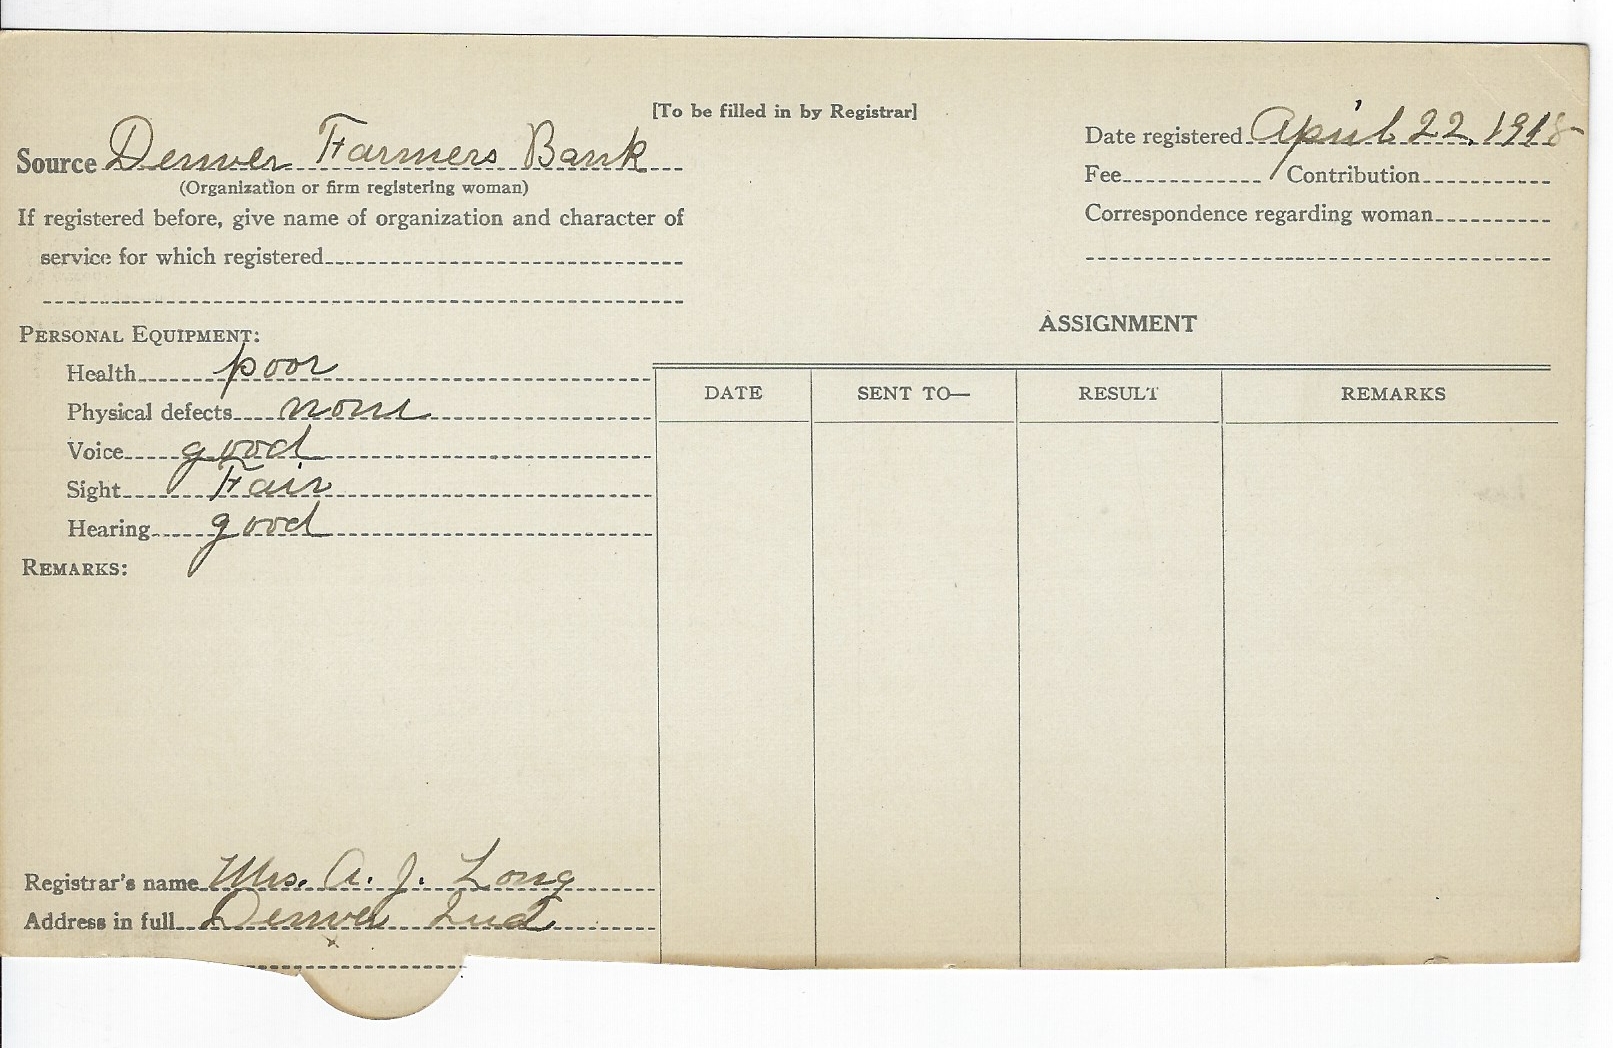 [To be filled in by Registrar]
Source Denver Farmers Bank
(Organization or firm registering woman)
If registered before, give name of organization and character of
service for which registered
Date registered April 22, 1918
Fee Contribution
Correspondence regarding woman
PERSONAL EQUIPMENT:
Health poor
Physical defects none
Voice good
Sight Fair
Hearing good
REMARKS:
Registrar's name Mrs. A. J. Long
Address in full Denver Ind
ASSIGNMENT
DATE SENT TO— RESULT REMARKS